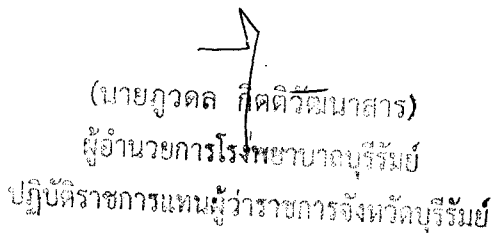 (นายภูวดล กิตติวัฒนาสาร)
ผู้อำนวยการโรงพยาบาลบุรีรัมย์
ปฏิบัติราชการแทนผู้ว่าราชการจังหวัดบุรีรัมย์